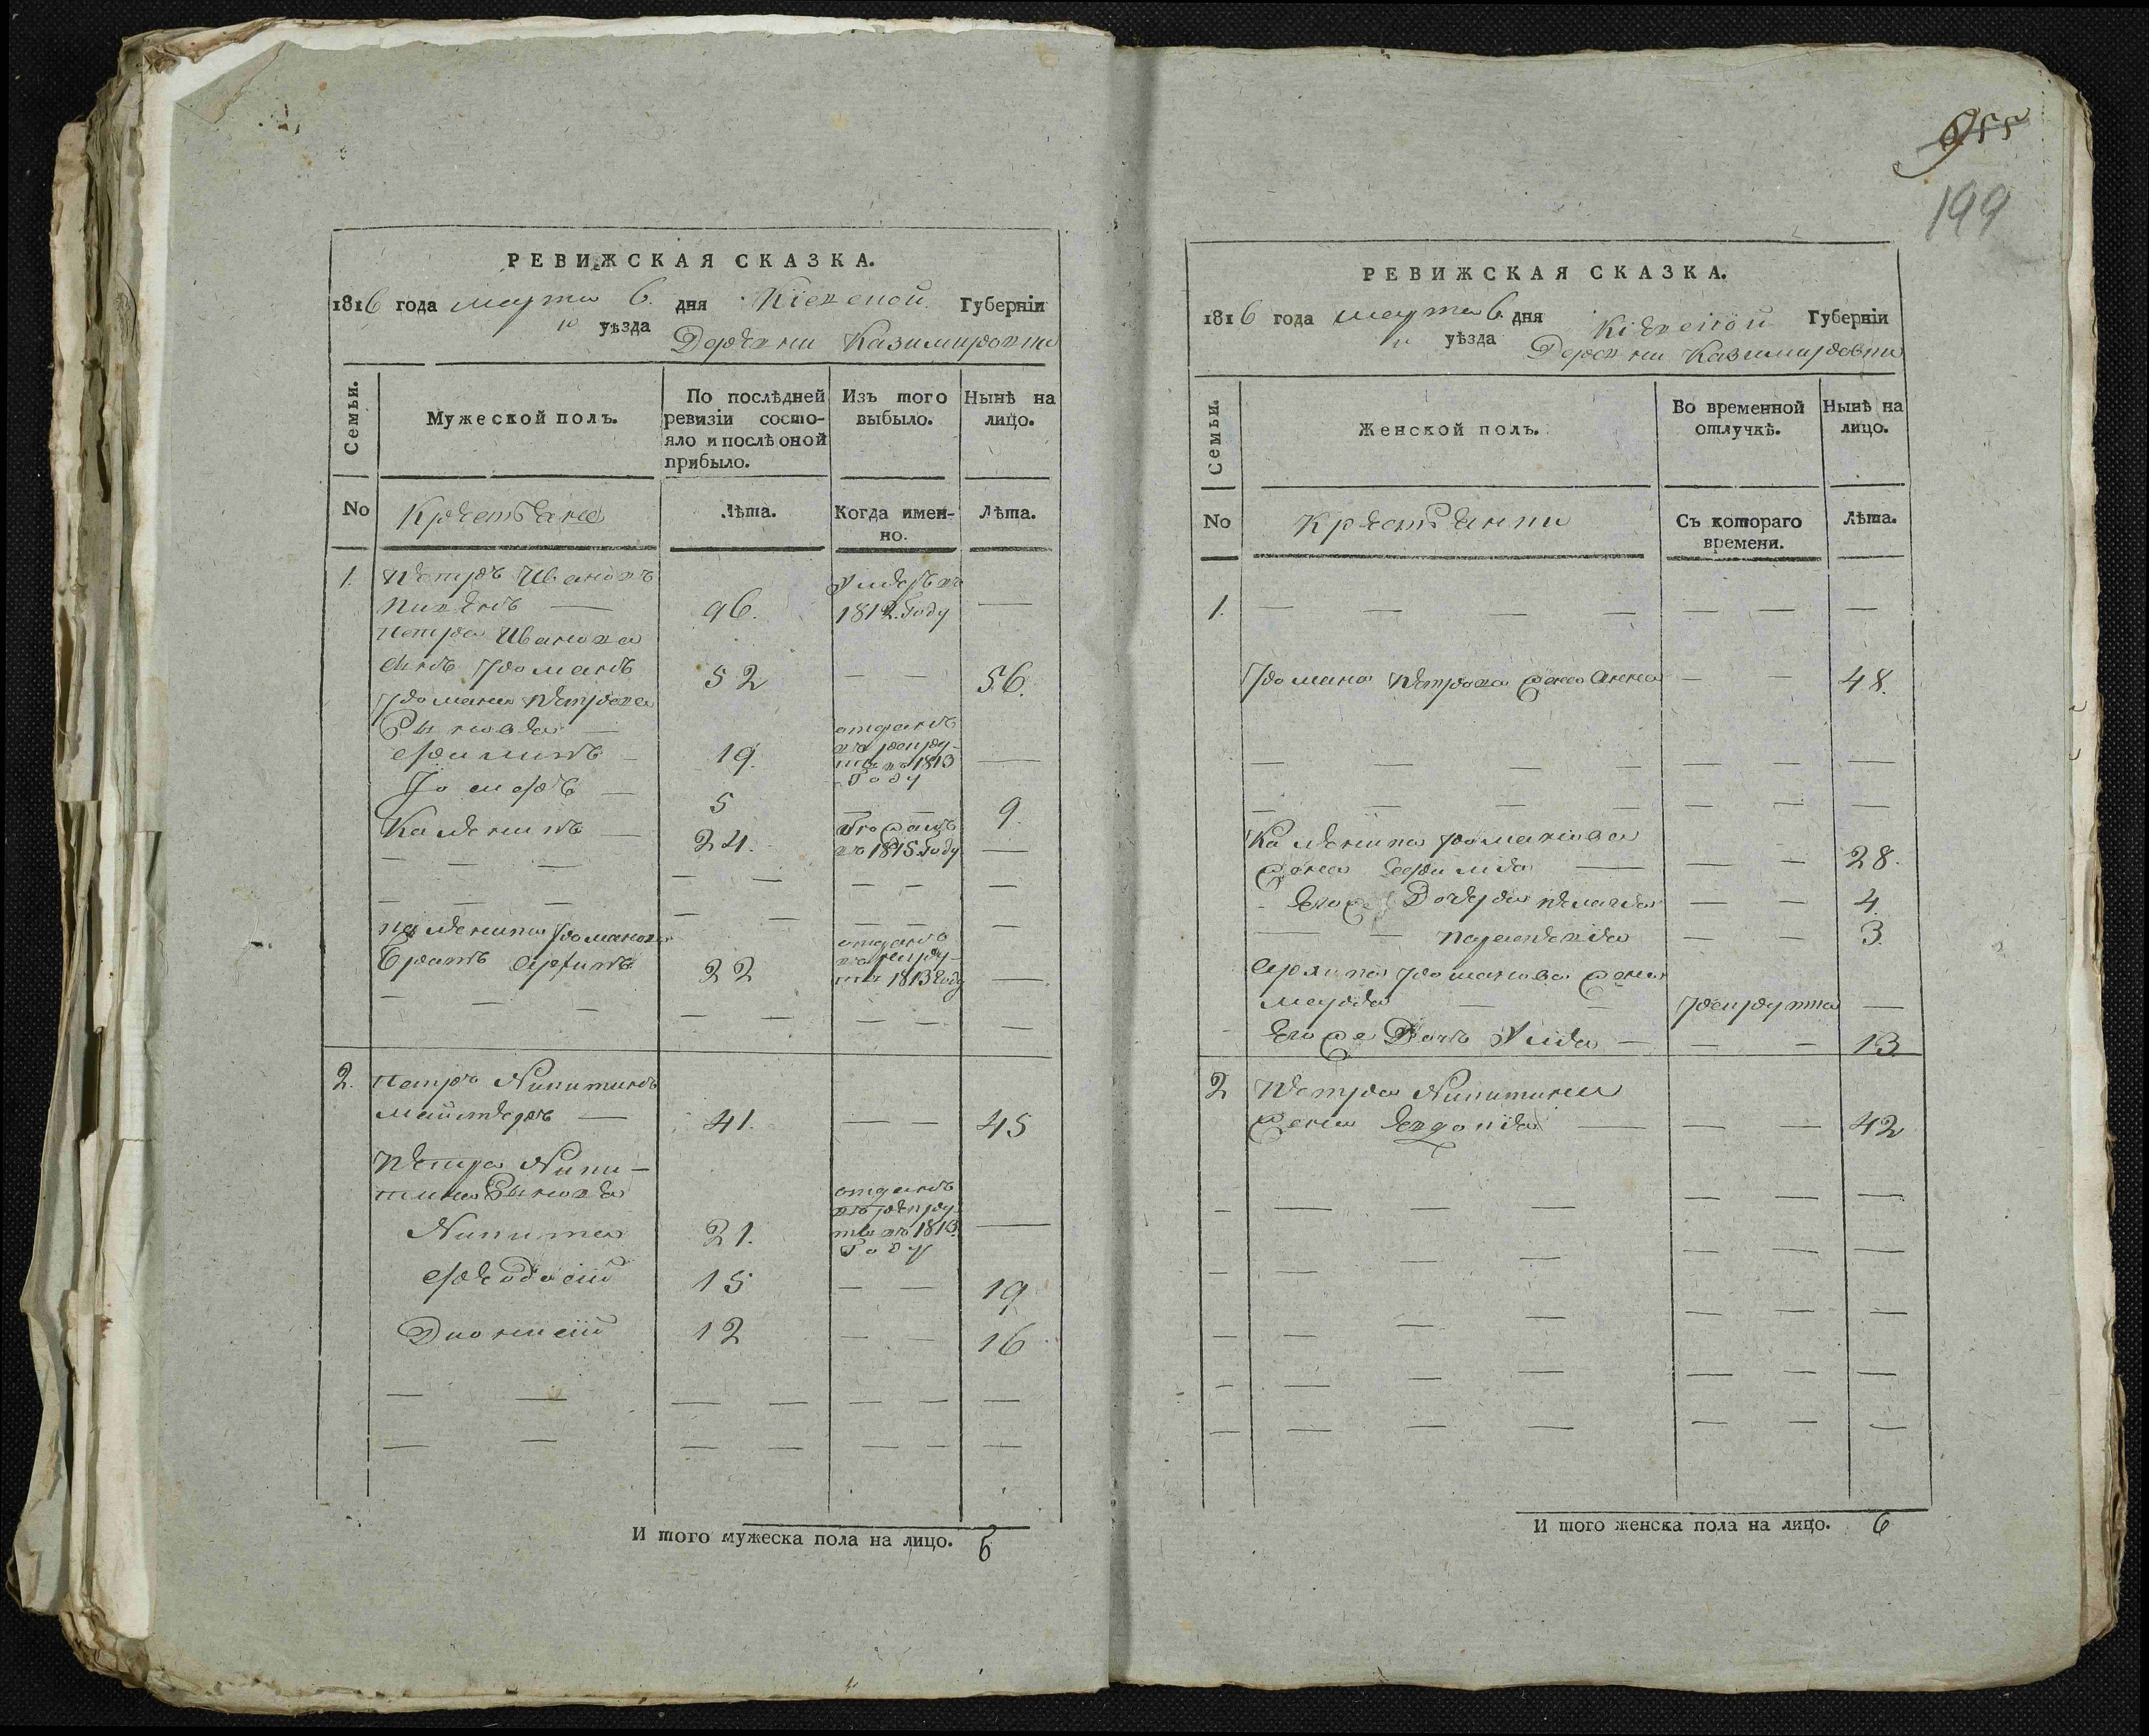 РЕВИЖСКАЯ СКАЗКА.
1816 года марта 6. дня Кіевской Губерніи
уѣзда Деревни Казимировки
Семьи.
Мужеской полъ.
По послѣдней ревизіи состояло и послѣ оной прибыло.
Изъ того выбыло.
Нынѣ на лицо.
No
Крестьяне
Лѣта.
Когда именно.
Лѣта.
1. Петръ Ивановъ
96. Умеръ въ 1812. году —
Петра Иванова
сынъ Романъ 52 — — 56.
Романа Петрова
Сыновья —
19. отданъ въ рекруты въ 1813 году —
5 — — 9.
24. въ 1815 году —
Романова
братъ 22 отданъ въ рекруты 1813 году —
2. Петръ Никитинъ
41. — — 45
Петра Ники-
тина Сыновья
Никита 21. отданъ въ рекруты въ 1813. Году —
Феодосій 15 — — 19
Дионисій 12 — — 16
И того мужеска пола на лицо. 5
955
199
РЕВИЖСКАЯ СКАЗКА.
1816 года марта 6. дня Кіевской Губерніи
уѣзда Деревни Казимировки
Семьи.
Женской полъ.
Во временной отлучкѣ.
Нынѣ на лицо.
No
Крестьянки
Съ котораго времени.
Лѣта.
1. — — — — — — —
Романа Петрова жена Анна — — 48.
Романова
жена — — — 28.
Его же Дочери Пелагея — — 4.
— — 3.
Романова жена
Марья — — рекрутка —
Его же Дочь — — — 13
2 Петра Никитина
жена Евдокія — — — 42
И того женска пола на лицо. 6